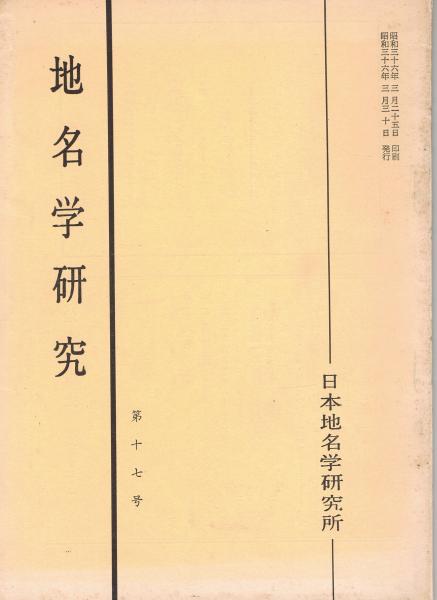 昭和三十六年 三月二十五日 印刷
昭和三十六年 三月三十日 発行
日本地名学研究所
第十七号
地名学研究